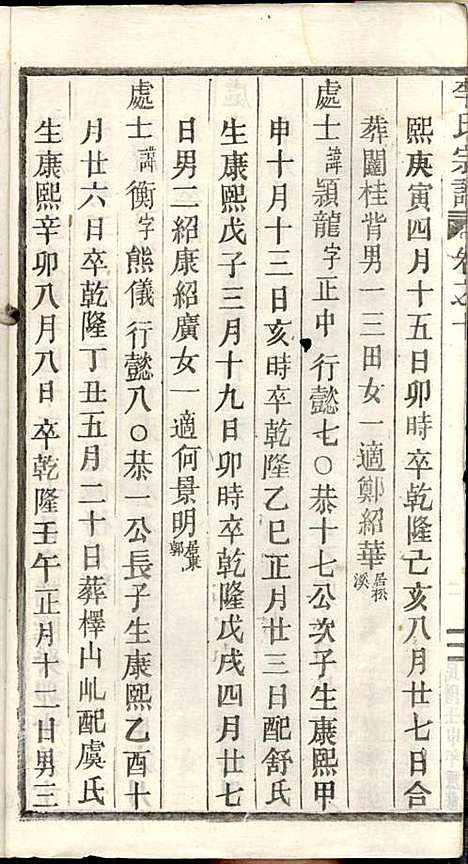 李氏宗譜
熙庚寅四月十五日卯時卒乾隆己亥八月廿七日合
葬闔桂背男一三田女一適鄭紹華居松溪
處士諱潁龍字正中行懿七〇恭十七公次子生康熙甲
申十月十三日亥時卒乾隆乙巳正月廿三日配舒氏
生康熙戊子三月十九日卯時卒乾隆戊戌四月廿七
日男二紹康紹廣女一適何景明居東郭
處士諱衡字熊儀行懿八〇恭一公長子生康熙乙酉十
月廿六日卒乾隆丁丑五月二十日葬檡山乢配虞氏
生康熙辛卯八月八日卒乾隆壬午正月十二日男三